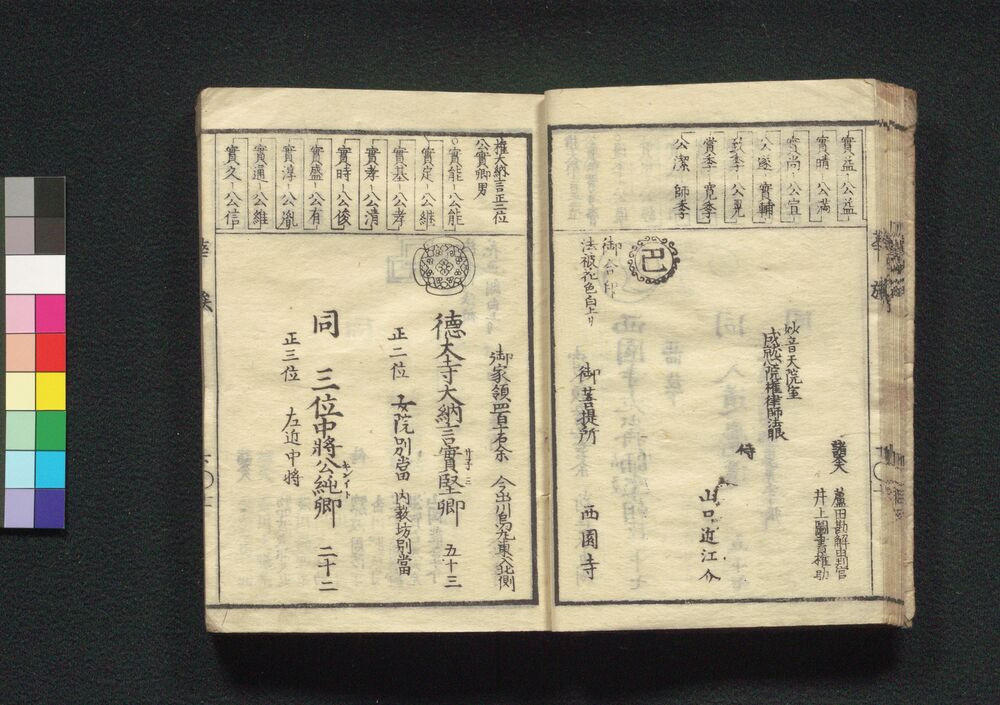 實益 公益
實晴 公満
實尚 公宣
公遂 實輔
致季 公晃
賞季 寛季
公潔 師季
妙音天院室
成就心院権律師法眼
諸大夫
蘆田勘解由判官
井上圖書権助
侍
山口近江介
巴
御合印
法被花色白上リ
御菩提所 西園寺
権大納言正二位
公實卿男
實能 公能
實定 公継
實基 公孝
實孝 公清
實時 公俊
實盛 公有
實淳 公胤
實通 公維
實久 公信
御家領四百十石余 今出川烏丸東入北側
德大寺大納言實堅卿 五十三
正二位 女院別當 内教坊別當
同 三位中將公純卿 二十二
キンイト
正三位 左近中将
華族